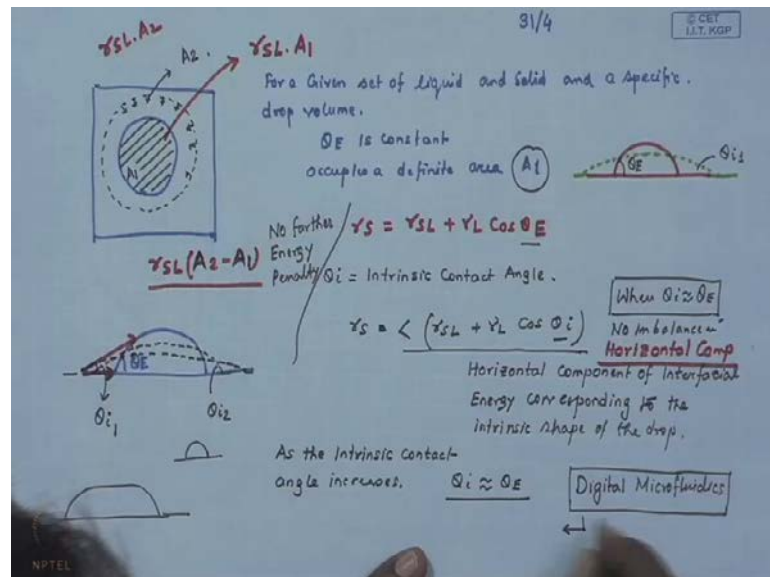 31/4
© CET
I.I.T. KGP
γSL.A2
γSL.A1
A2.
A1
For a Given set of liquid and Solid and a specific.
drop volume.
θE is constant
occupies a definite area A1
θE
θi1
γS = γSL + γL Cos θE
No further
Energy
Penalty
γSL(A2-A1)
θi = Intrinsic Contact Angle.
When θi≈θE
No imbalance in
Horizontal Comp
γS = < (γSL + γL Cos θi)
Horizontal Component of Interfacial
Energy corresponding to the
intrinsic shape of the drop.
θE
θi1
θi2
As the Intrinsic Contact
angle increases.
θi ≈ θE
Digital Microfluidics
NPTEL